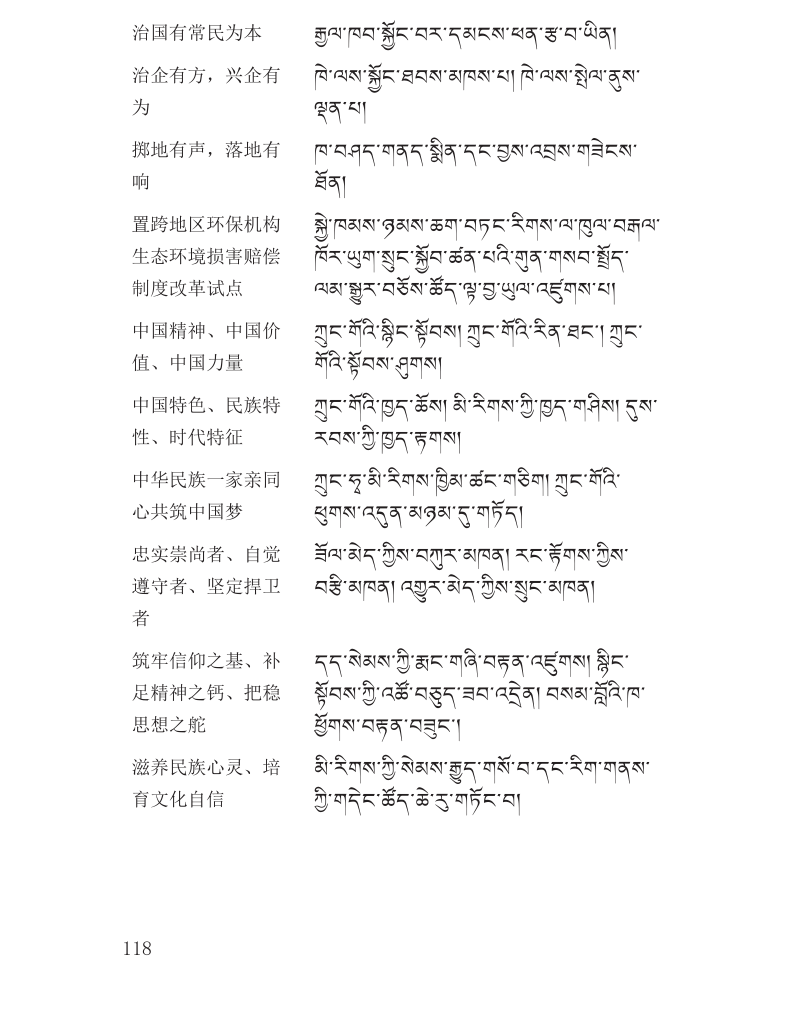 治国有常民为本 རྒྱལ་ཁབ་སྐྱོང་བར་དམངས་ཕན་རྩ་བ་ཡིན།
治企有方，兴企有 ཁེ་ལས་སྐྱོང་ཐབས་མཁས་པ། ཁེ་ལས་སྤེལ་ནུས་
为 ལྡན་པ།
掷地有声，落地有 ཁ་བཤད་གནད་སྨིན་དང་བྱས་འབྲས་གཟེངས་
响 ཐོན།
置跨地区环保机构 སྐྱེ་ཁམས་ཉམས་ཆག་བཏང་རིགས་ལ་ཁུལ་བརྒལ་
生态环境损害赔偿 ཁོར་ཡུག་སྲུང་སྐྱོབ་ཚན་པའི་གུན་གསབ་སྤྲོད་
制度改革试点 ལམ་སྒྱུར་བཅོས་ཚོད་ལྟ་བྱ་ཡུལ་འཛུགས་པ།
中国精神、中国价 ཀྲུང་གོའི་སྙིང་སྟོབས། ཀྲུང་གོའི་རིན་ཐང་། ཀྲུང་
值、中国力量 གོའི་སྟོབས་ཤུགས།
中国特色、民族特 ཀྲུང་གོའི་ཁྱད་ཆོས། མི་རིགས་ཀྱི་ཁྱད་གཤིས། དུས་
性、时代特征 རབས་ཀྱི་ཁྱད་རྟགས།
中华民族一家亲同 ཀྲུང་ཧྭ་མི་རིགས་ཁྱིམ་ཚང་གཅིག། ཀྲུང་གོའི་
心共筑中国梦 ཕུགས་འདུན་མཉམ་དུ་གཏོད།
忠实崇尚者、自觉 ཟོལ་མེད་ཀྱིས་བཀུར་མཁན། རང་རྟོགས་ཀྱིས་
遵守者、坚定捍卫 བརྩི་མཁན། འགྱུར་མེད་ཀྱིས་སྲུང་མཁན།
者
筑牢信仰之基、补 དད་སེམས་ཀྱི་རྨང་གཞི་བརྟན་འཛུགས། སྙིང་
足精神之钙、把稳 སྟོབས་ཀྱི་འཚོ་བཅུད་ཟབ་འདྲེན། བསམ་བློའི་ཁ་
思想之舵 ཕྱོགས་བརྟན་བཟུང་།
滋养民族心灵、培 མི་རིགས་ཀྱི་སེམས་རྒྱུད་གསོ་བ་དང་རིག་གནས་
育文化自信 ཀྱི་གདེང་ཚོད་ཆེ་རུ་གཏོང་བ།
118